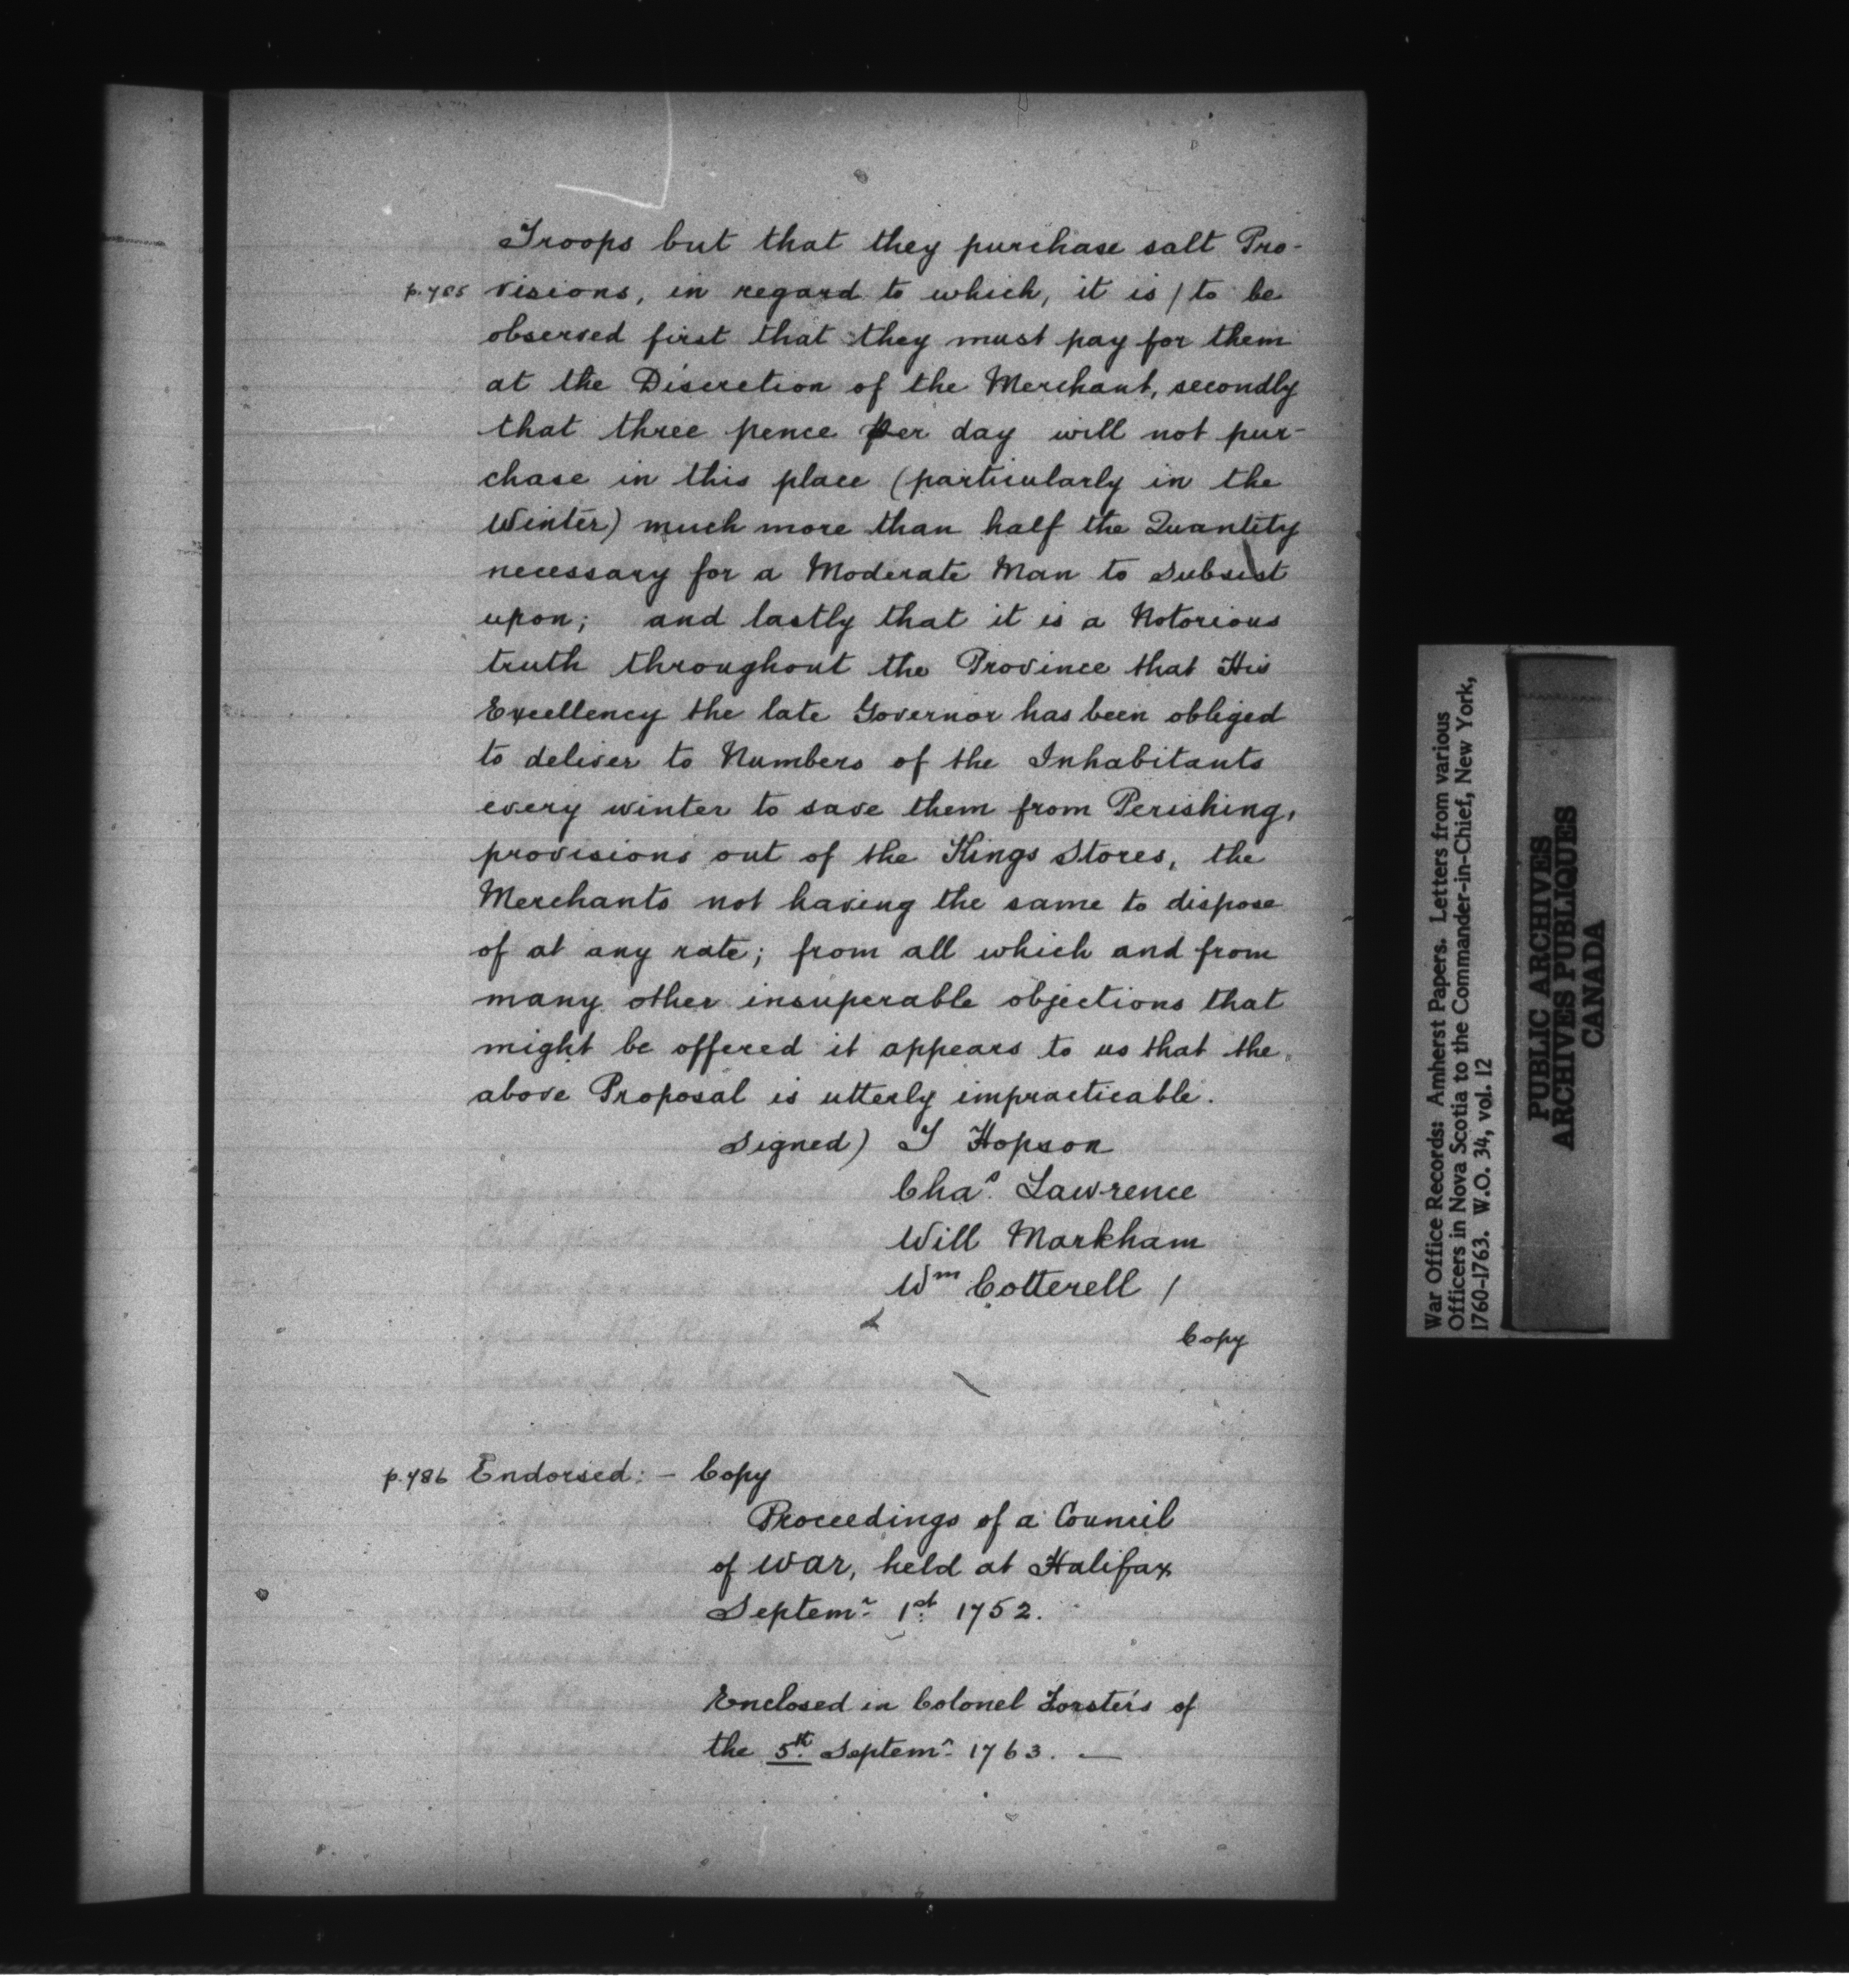 Troops but that they purchase salt Pro-
p.485 visions, in regard to which, it is / to be
observed first that they must pay for them
at the Discretion of the Merchant, secondly
that three pence per day will not pur-
chase in this place (particularly in the
Winter) much more than half the Quantity
necessary for a Moderate Man to Subsist
upon; and lastly that it is a Notorious
truth throughout the Province that His
Excellency the late Governor has been obliged
to deliver to Numbers of the Inhabitants
every winter to save them from Perishing,
provisions out of the Kings Stores, the
Merchants not having the same to dispose
of at any rate; from all which and from
many other insuperable objections that
might be offered it appears to us that the
above Proposal is utterly impracticable.
Signed) T Hopson
Chas. Lawrence
Will Markham
Wm Cotterell /
Copy
p.486 Endorsed: - Copy
Proceedings of a Council
of War, held at Halifax
Septemr 1st 1752.
Enclosed in Colonel Forster's of
the 5th Septemr 1763. —
War Office Records: Amherst Papers. Letters from various
Officers in Nova Scotia to the Commander-in-Chief, New York,
1760-1763. W.O. 34, vol. 12
PUBLIC ARCHIVES
ARCHIVES PUBLIQUES
CANADA